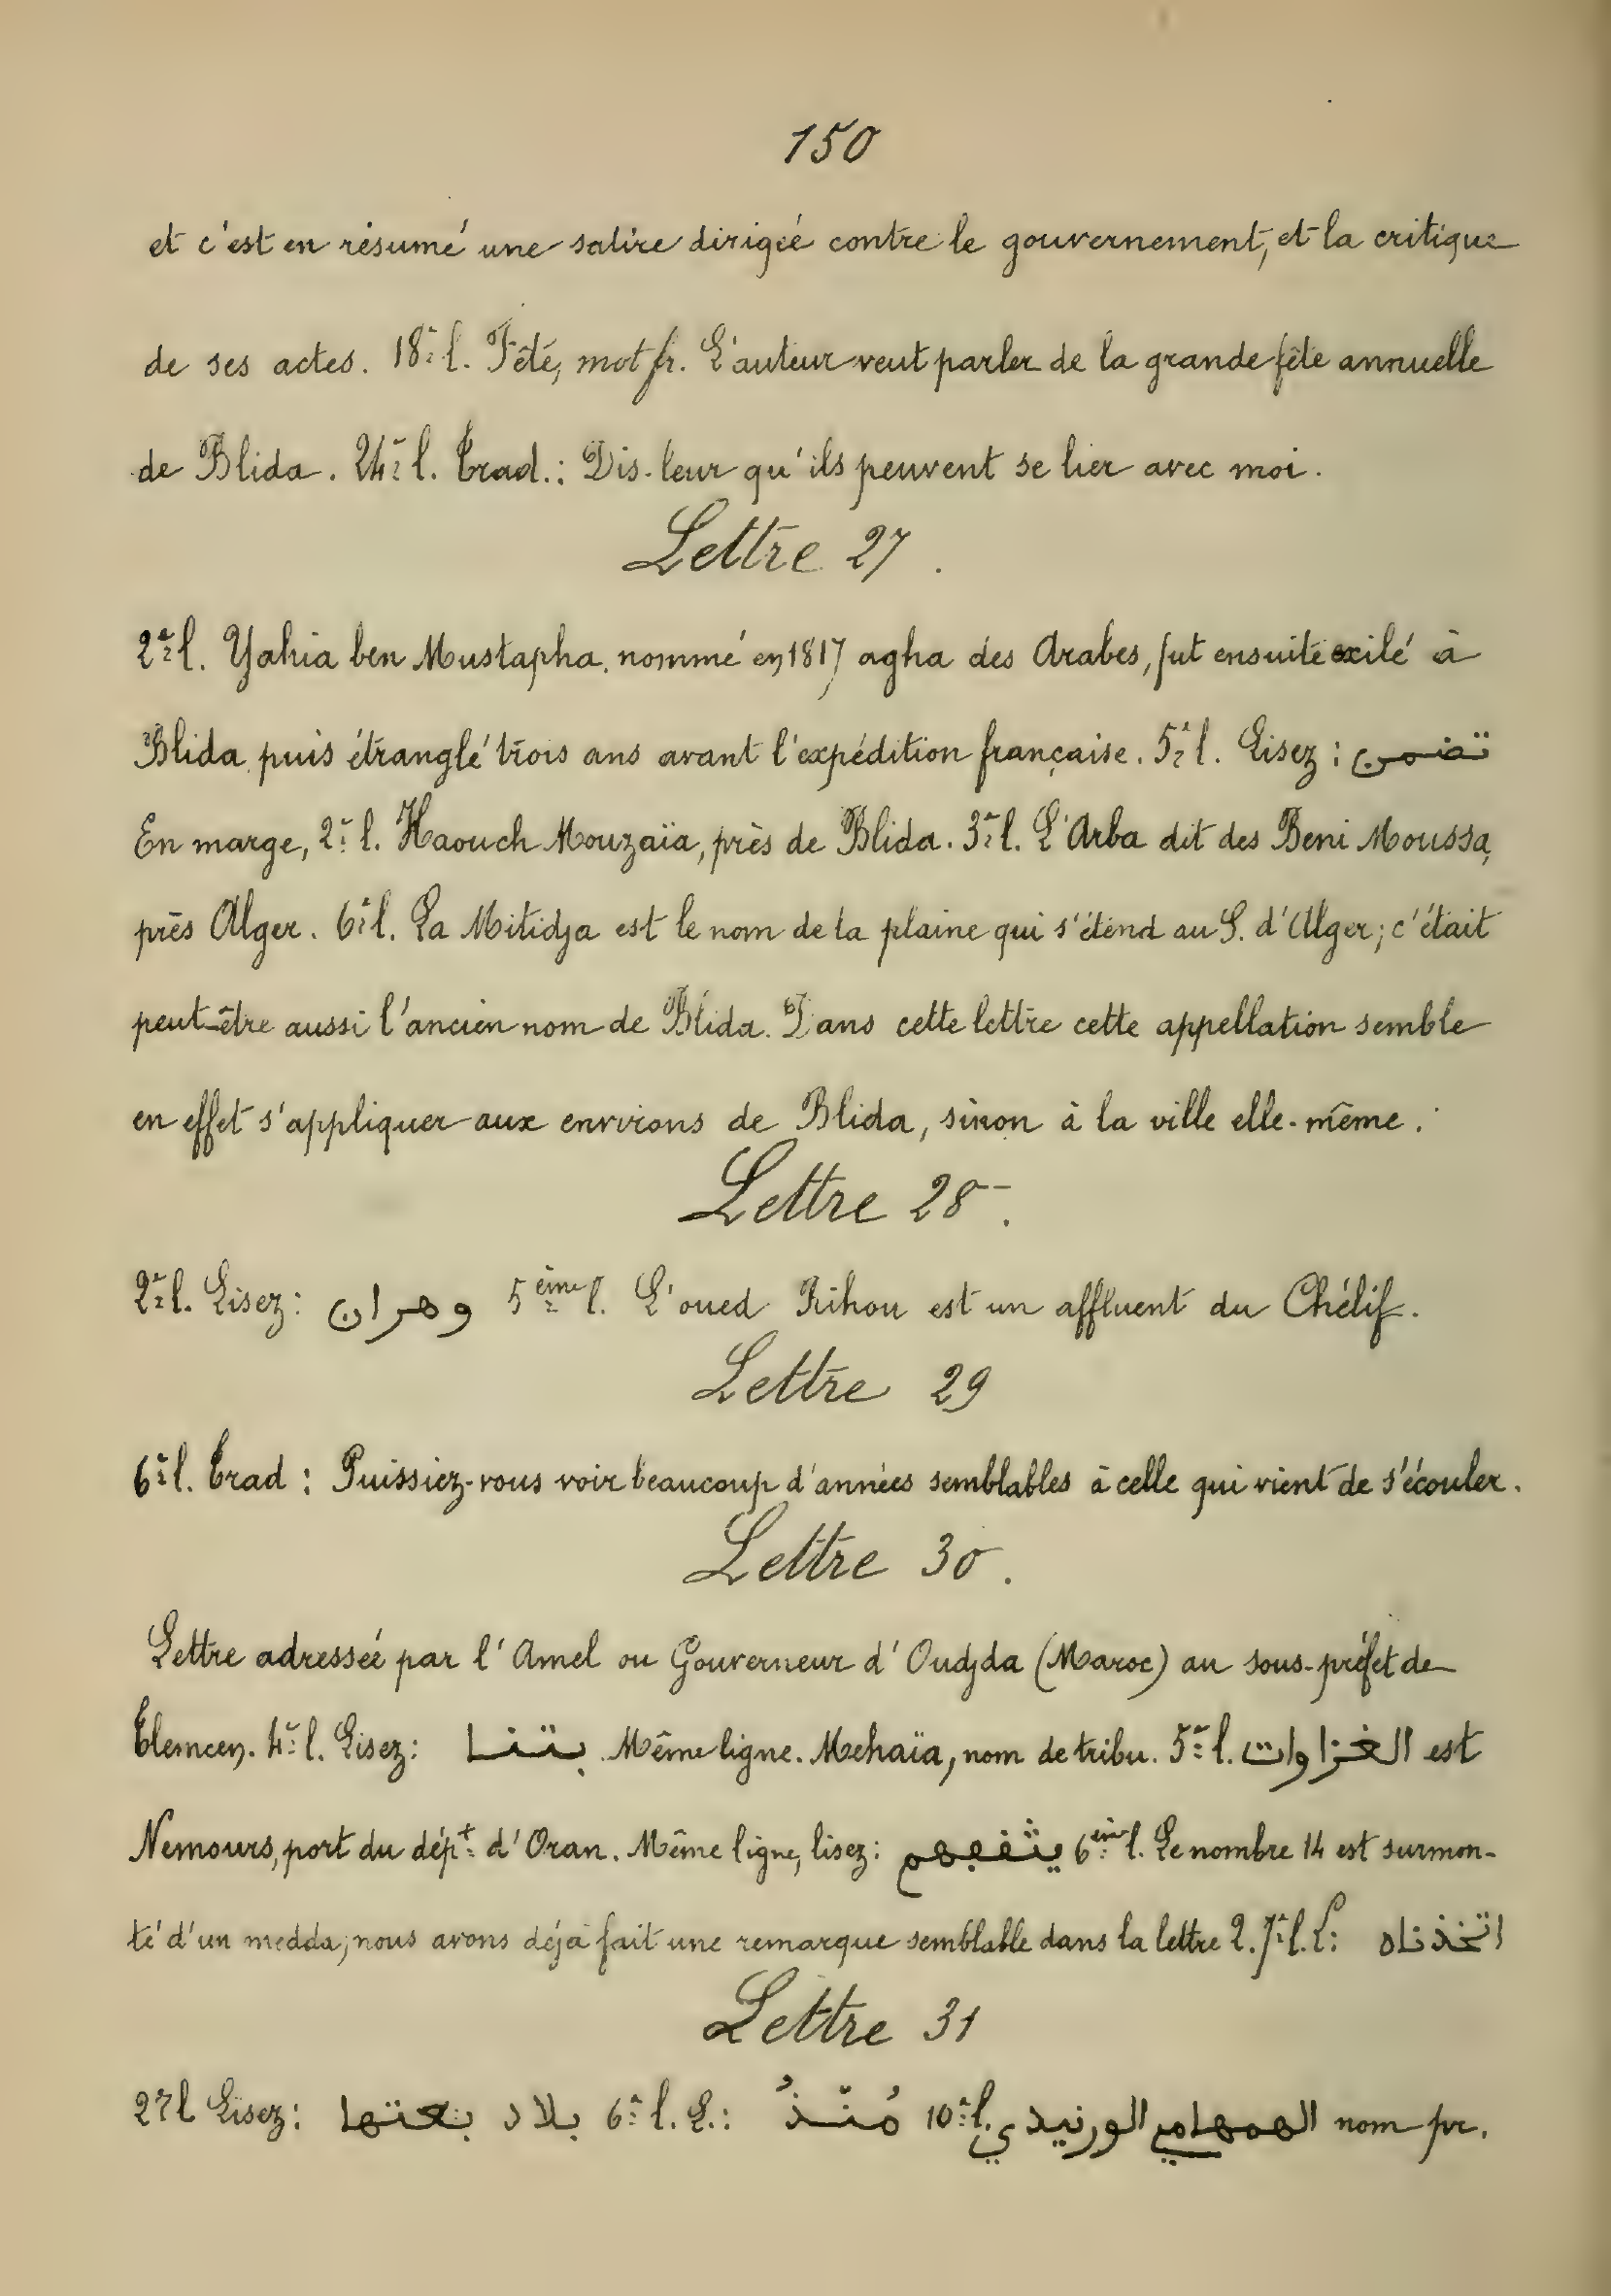 150
et c'est en résumé une satire dirigée contre le gouvernement, et la critique
de ses actes. 18e l. Fêté, mot fr. L'auteur veut parler de la grande fête annuelle
de Blida. 24e l. Trad.: Dis-leur qu'ils peuvent se lier avec moi.
Lettre 27.
2e l. Yahia ben Mustapha, nommé en 1817 agha des Arabes, fut ensuite exilé à
Blida, puis étranglé trois ans avant l'expédition française. 5e l. Lisez: تضمن
En marge, 2e l. Haouch Mouzaïa, près de Blida. 3e l. L'Arba dit des Beni Moussa,
près Alger. 6e l. La Mitidja est le nom de la plaine qui s'étend au S. d'Alger; c'était
peut-être aussi l'ancien nom de Blida. Dans cette lettre cette appellation semble
en effet s'appliquer aux environs de Blida, sinon à la ville elle-même.
Lettre 28.
2e l. Lisez: وهران 5ème l. L'oued Rihou est un affluent du Chélif.
Lettre 29
6e l. Trad: Puissiez-vous voir beaucoup d'années semblables à celle qui vient de s'écouler.
Lettre 30.
Lettre adressée par l'Amel ou Gouverneur d'Oudjda (Maroc) au sous-préfet de
Tlemcen. 4e l. Lisez: بتنا. Même ligne. Mehaïa, nom de tribu. 5e l. الغزاوات est
Nemours, port du dépt. d'Oran. Même ligne, lisez: 6ème l. Le nombre 14 est surmon-
té d'un medda; nous avons déjà fait une remarque semblable dans la lettre 2. 7e l. L: اتخذناه
Lettre 31
2e l. Lisez: بلاد بعتها 6e l. L.: مُنْذُ 10e l. الورنيدي nom pr.